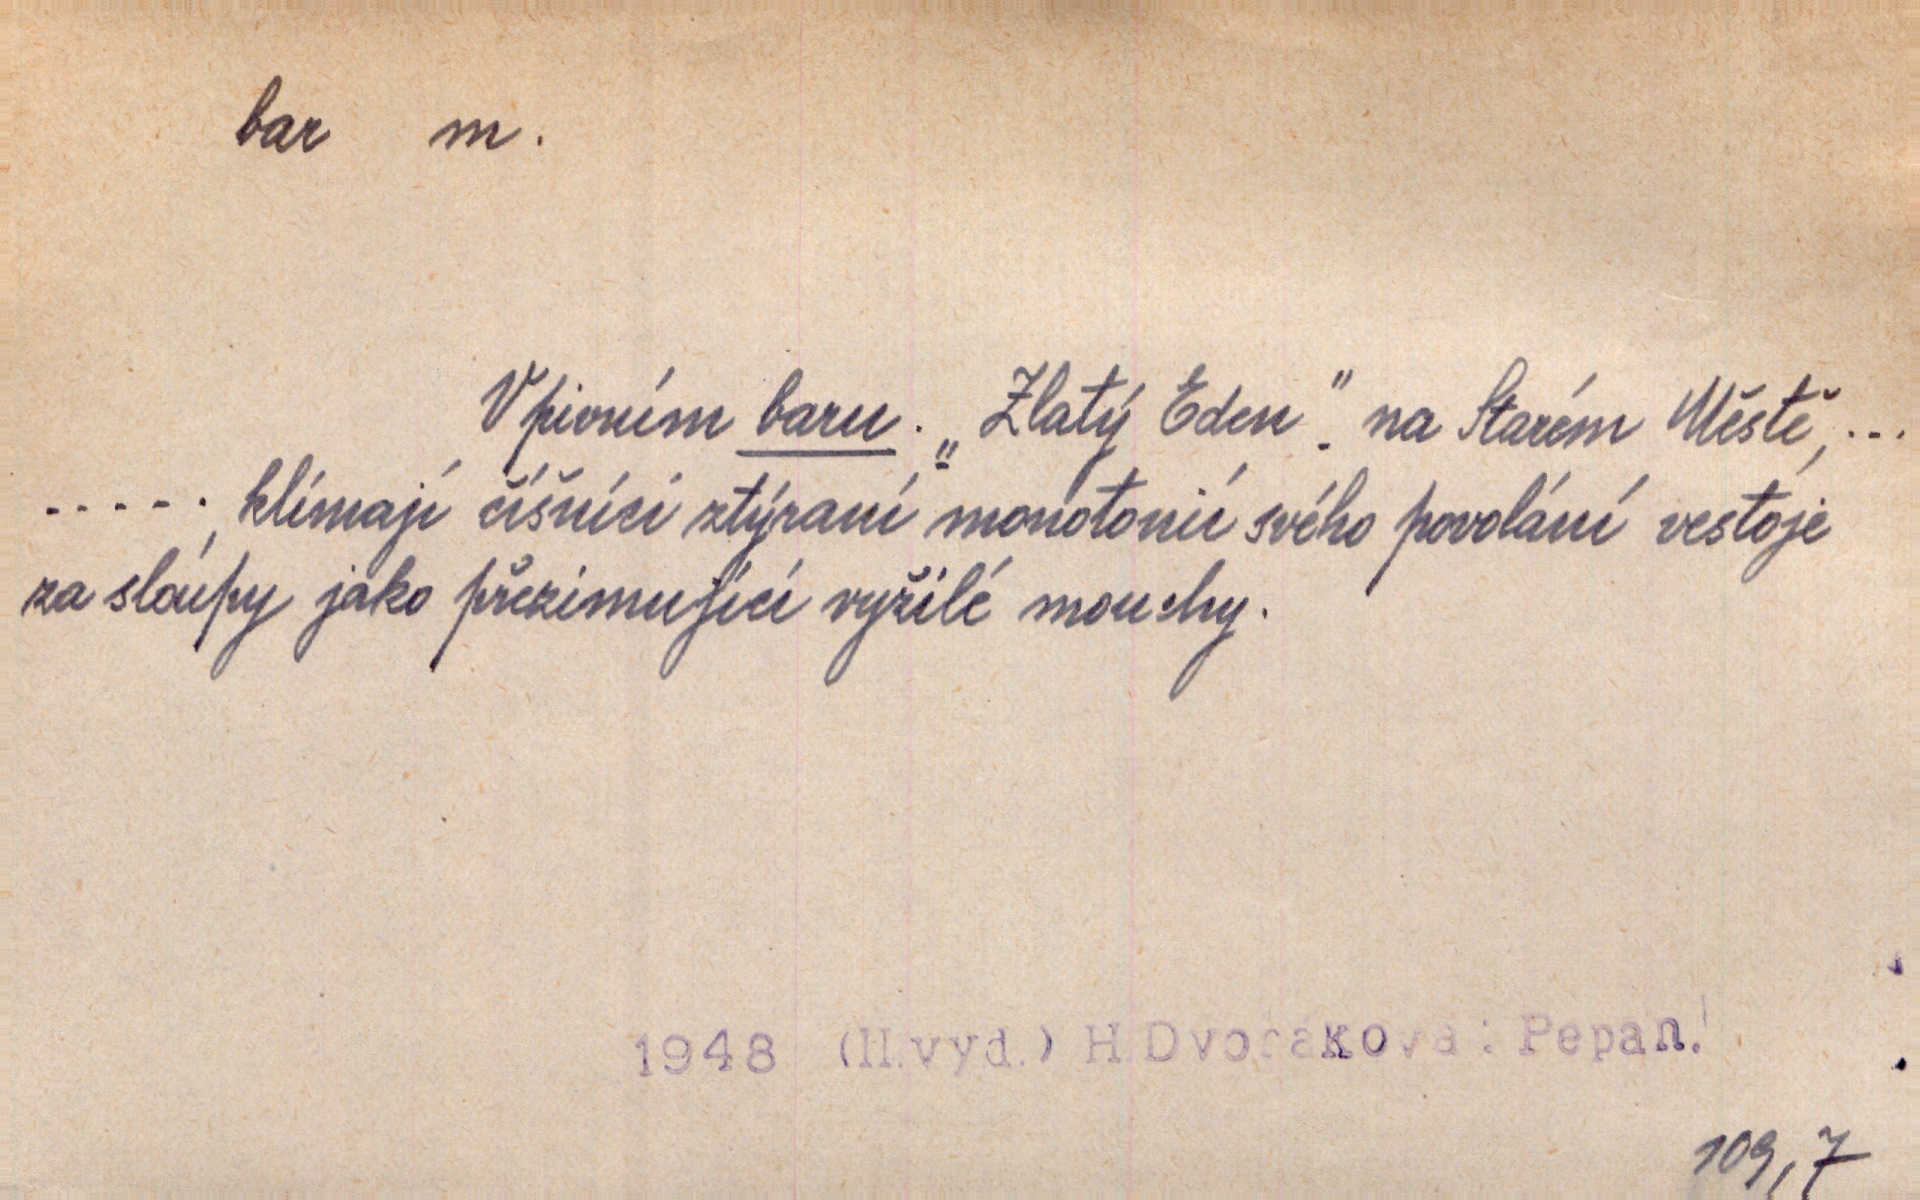 bar m.
V pivním baru. „Zlatý Eden." na Starém Městě, ...
.....‚ klímají číšníci ztýraní monotonií svého povolání vestoje
za sloupy jako přezimující vyžilé mouchy.
1948 (II.vyd.) H.Dvořáková: Pepan.
109,7